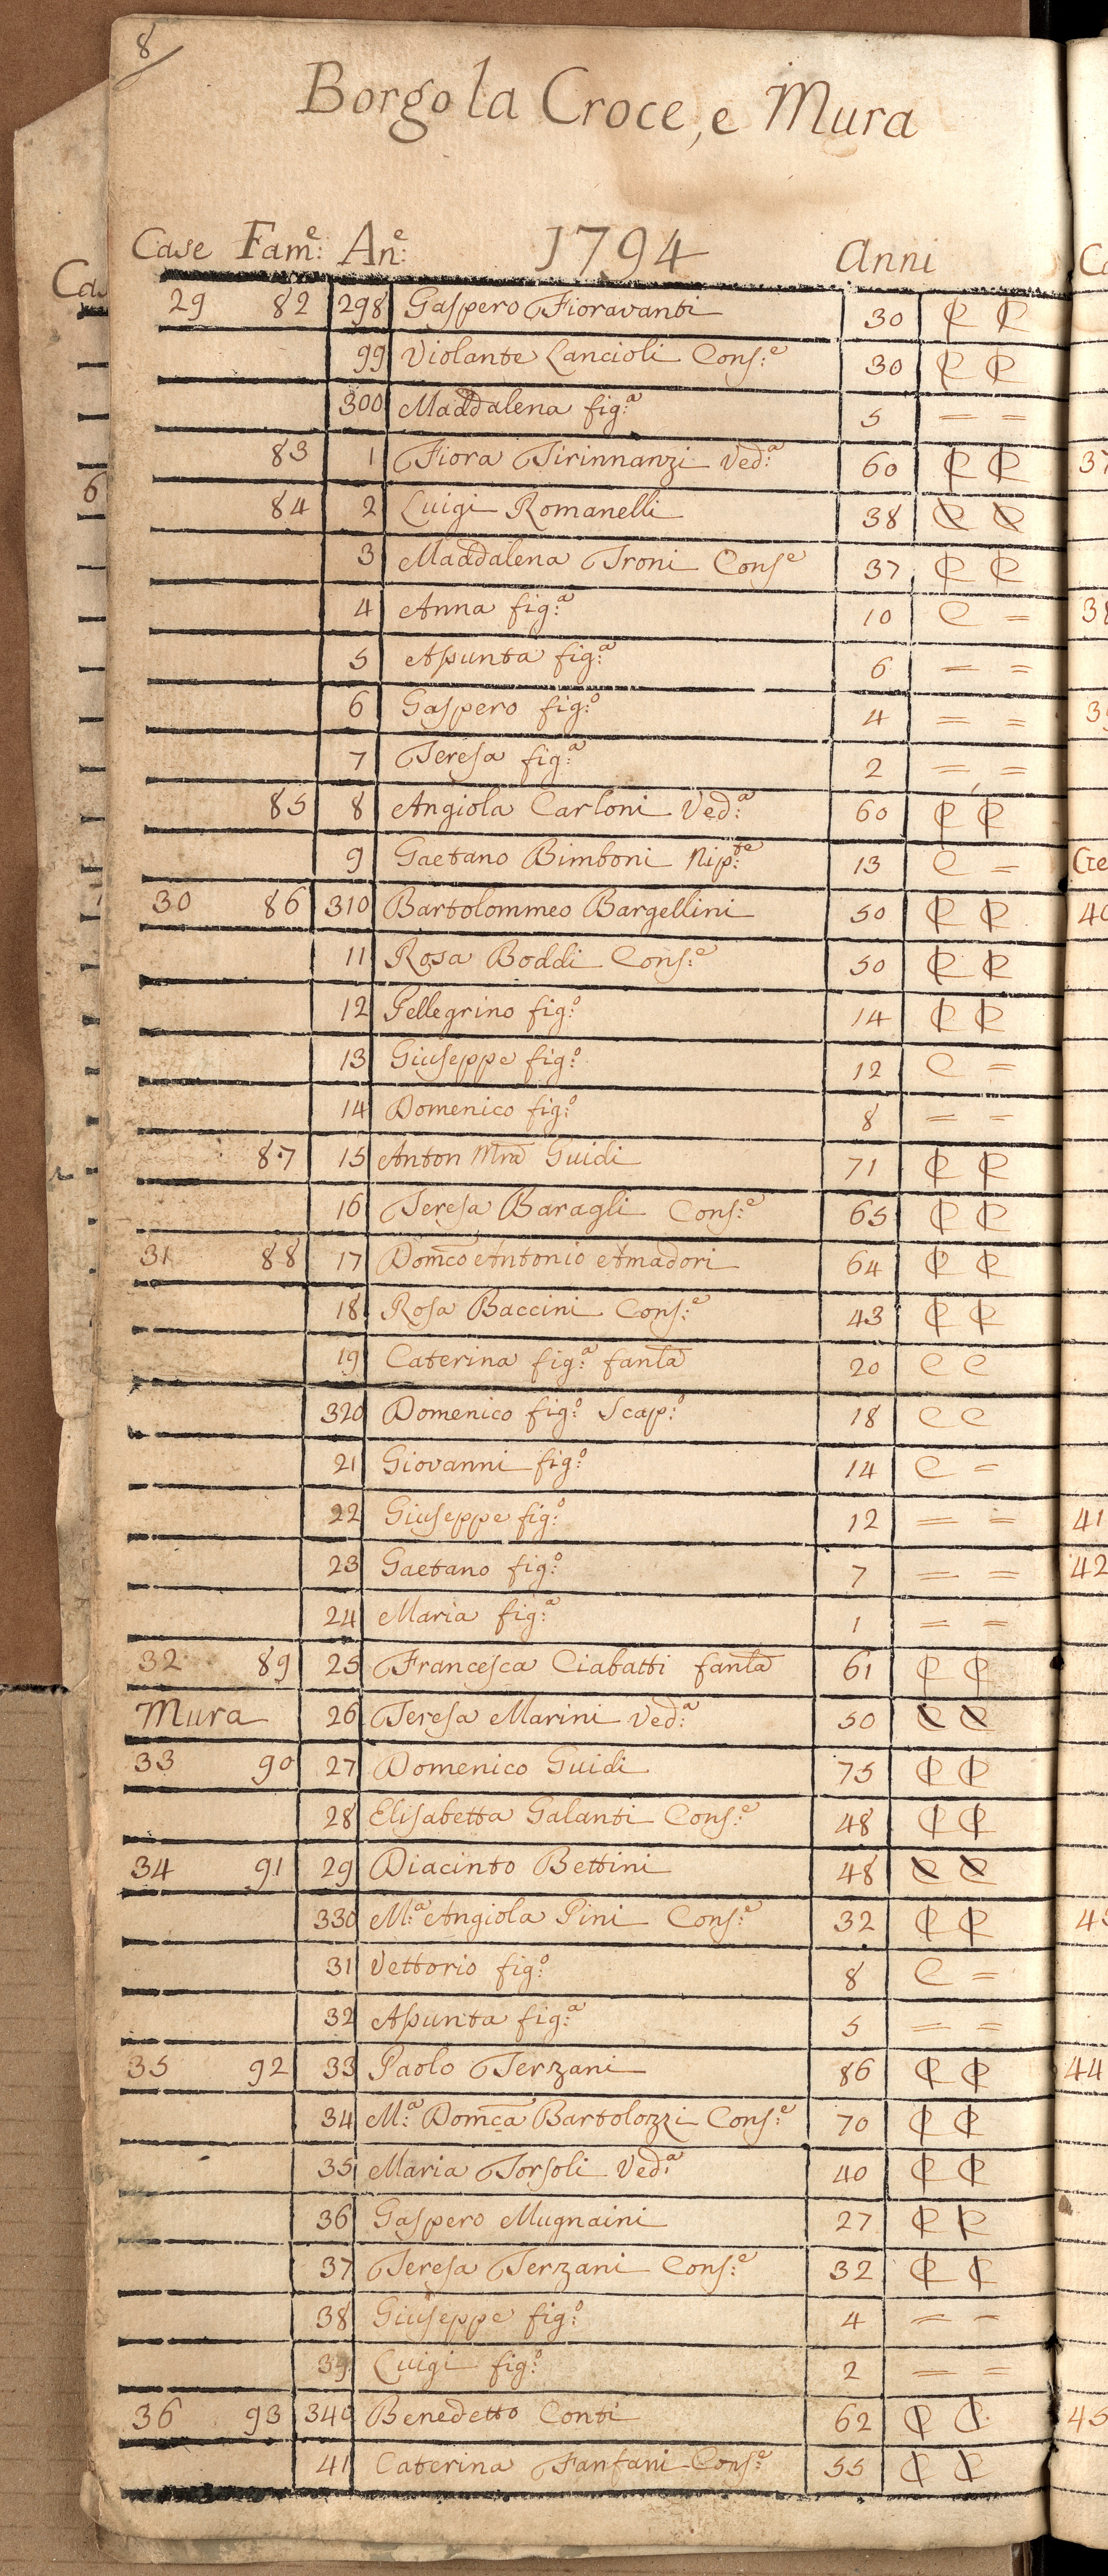 8
Borgo la Croce, e Mura
Case Fam:e An:e 1794 Anni
29 82 298 Gaspero Fioravanti 30 C C
99 Violante Lancioli Cons:e 30 C C
300 Maddalena fig:a 5 = =
83 1 Fiora Tirinnanzi Ved:a 60 C C
84 2 Luigi Romanelli 38 C C
3 Maddalena Troni Conse 37 C C
4 Anna fig:a 10 C =
5 Assunta fig:a 6 = =
6 Gaspero fig:o 4 = =
7 Teresa fig:a 2 = =
85 8 Angiola Carloni Ved:a 60 C C
9 Gaetano Bimboni Nip:te 13 C =
30 86 310 Bartolommeo Bargellini 50 C C
11 Rosa Boddi Cons:e 50 C C
12 Pellegrino fig:o 14 C C
13 Giuseppe fig:o 12 C =
14 Domenico fig:o 8 = =
87 15 Anton Mra Guidi 71 C C
16 Teresa Baragli Cons:e 65 C C
31 88 17 Domco Antonio Amadori 64 C C
18 Rosa Baccini Cons:e 43 C C
19 Caterina fig:a fanla 20 C C
320 Domenico fig:o Scap:o 18 C C
21 Giovanni fig:o 14 C =
22 Giuseppe fig:o 12 = =
23 Gaetano fig:o 7 = =
24 Maria fig:a 1 = =
32 89 25 Francesca Ciabatti fanla 61 C C
Mura 26 Teresa Marini Ved:a 50 C C
33 90 27 Domenico Guidi 75 C C
28 Elisabetta Galanti Cons:e 48 C C
34 91 29 Diacinto Bettini 48 C C
330 M:a Angiola Pini Cons:e 32 C C
31 Vettorio fig:o 8 C =
32 Assunta fig:a 5 = =
35 92 33 Paolo Terzani 86 C C
34 M:a Domca Bartolozzi Cons:e 70 C C
35 Maria Torsoli Ved:a 40 C C
36 Gaspero Mugnaini 27 C C
37 Teresa Terzani Cons:e 32 C C
38 Giuseppe fig:o 4 = =
39 Luigi fig:o 2 = =
36 93 340 Benedetto Conti 62 C C
41 Caterina Fanfani Cons:e 55 C C